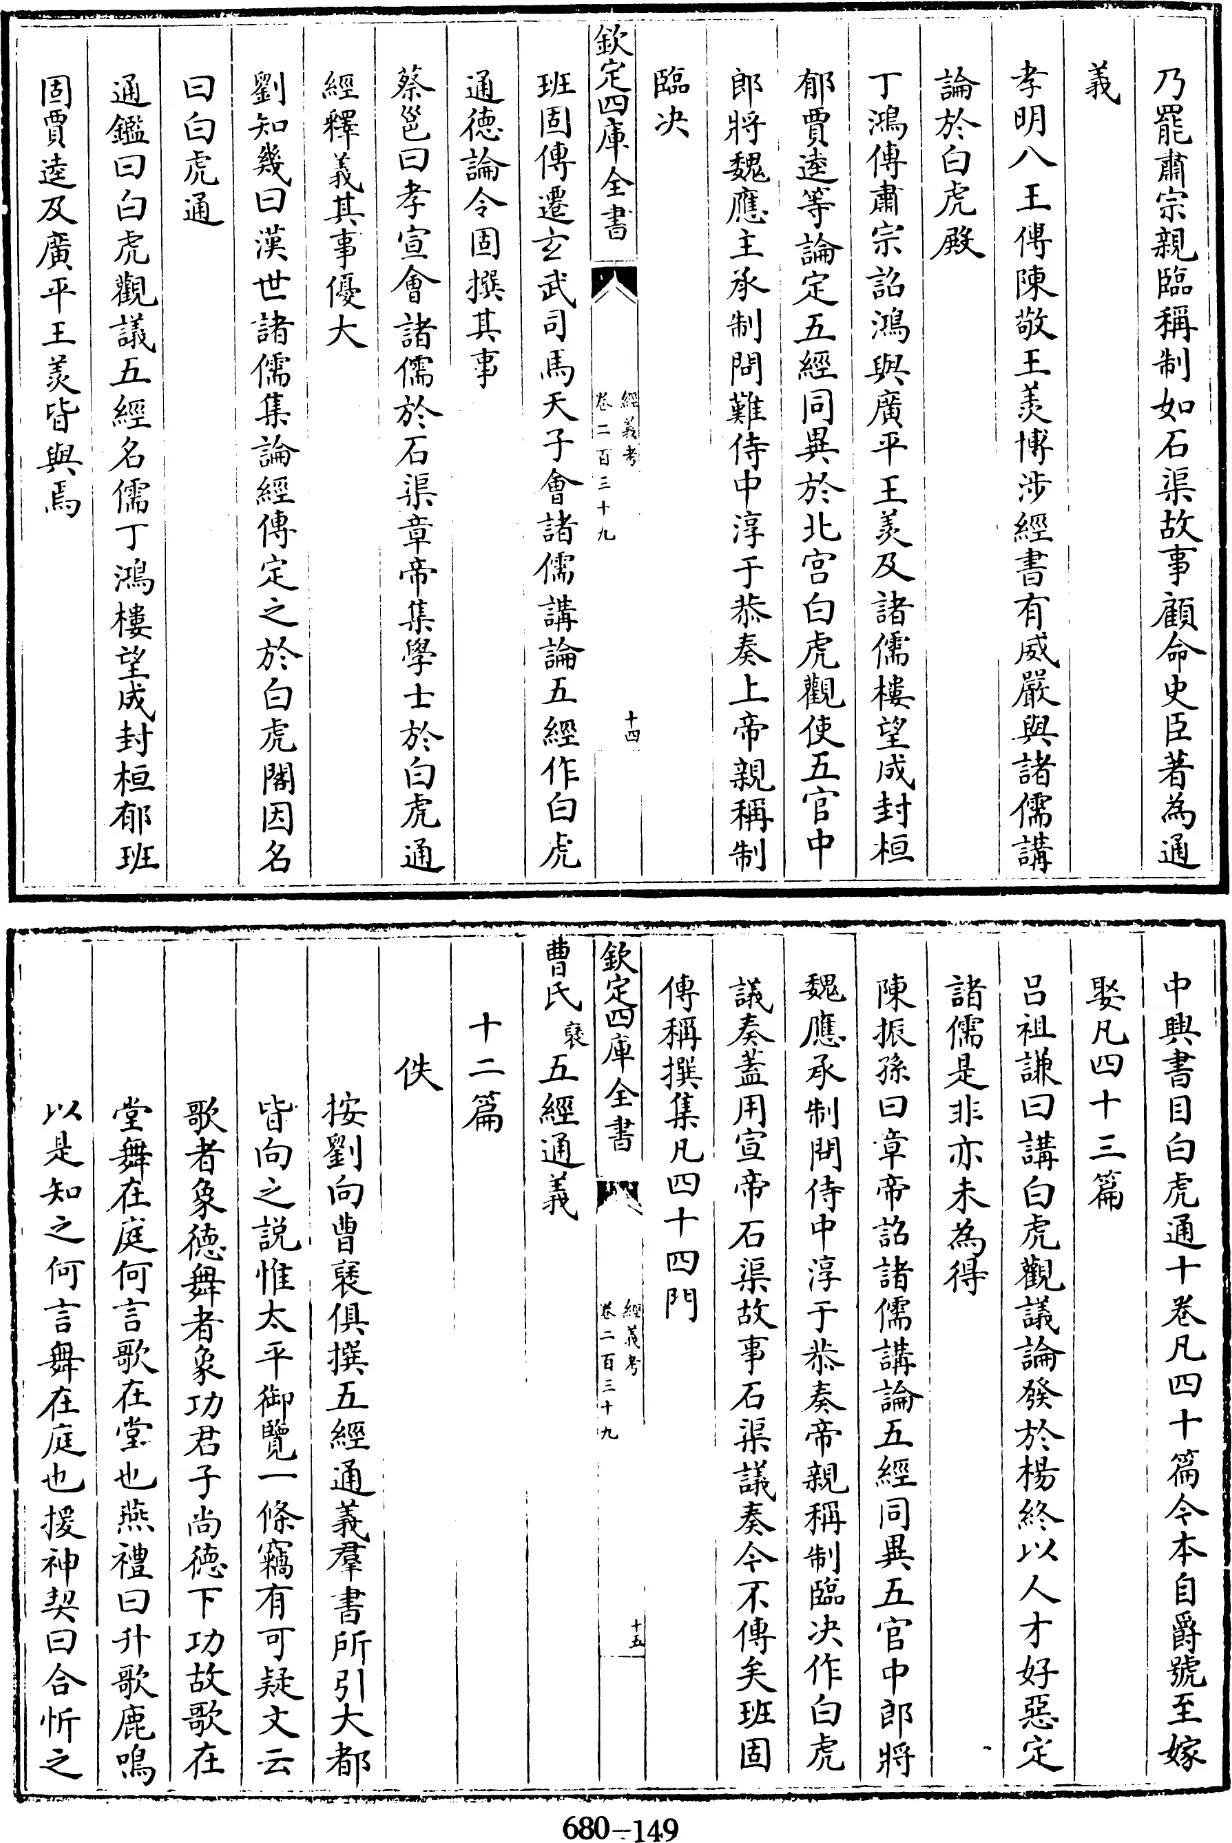 乃罷肅宗親臨稱制如石渠故事顧命史臣著為通
義
孝明八王傳陳敬王羨博涉經書有威嚴與諸儒講
論於白虎殿
丁鴻傳肅宗詔鴻與廣平王羨及諸儒樓望成封桓
郁賈逵等論定五經同異於北宮白虎觀使五官中
郎將魏應主承制問難侍中淳于恭奏上帝親稱制
臨决
欽定四庫全書
經義考
卷二百三十九
十四
班固傳遷玄武司馬天子會諸儒講論五經作白虎
通德論令固撰其事
蔡邕曰孝宣會諸儒於石渠章帝集學士於白虎通
經釋義其事優大
劉知幾曰漢世諸儒集論經傳定之於白虎閣因名
曰白虎通
通鑑曰白虎觀議五經名儒丁鴻樓望成封桓郁班
固賈逵及廣平王羨皆與焉
中興書目白虎通十卷凡四十篇今本自爵號至嫁
娶凡四十三篇
呂祖謙曰講白虎觀議論發於楊終以人才好惡定
諸儒是非亦未為得
陳振孫曰章帝詔諸儒講論五經同異五官中郎將
魏應承制問侍中淳于恭奏帝親稱制臨决作白虎
議奏蓋用宣帝石渠故事石渠議奏今不傳矣班固
傳稱撰集凡四十四門
欽定四庫全書
經義考
卷二百三十九
十五
曹氏褎五經通義
十二篇
佚
按劉向曹褎俱撰五經通義羣書所引大都
皆向之說惟太平御覽一條竊有可疑文云
歌者象德舞者象功君子尚德下功故歌在
堂舞在庭何言歌在堂也燕禮曰升歌鹿鳴
以是知之何言舞在庭也援神契曰合忻之
680-149